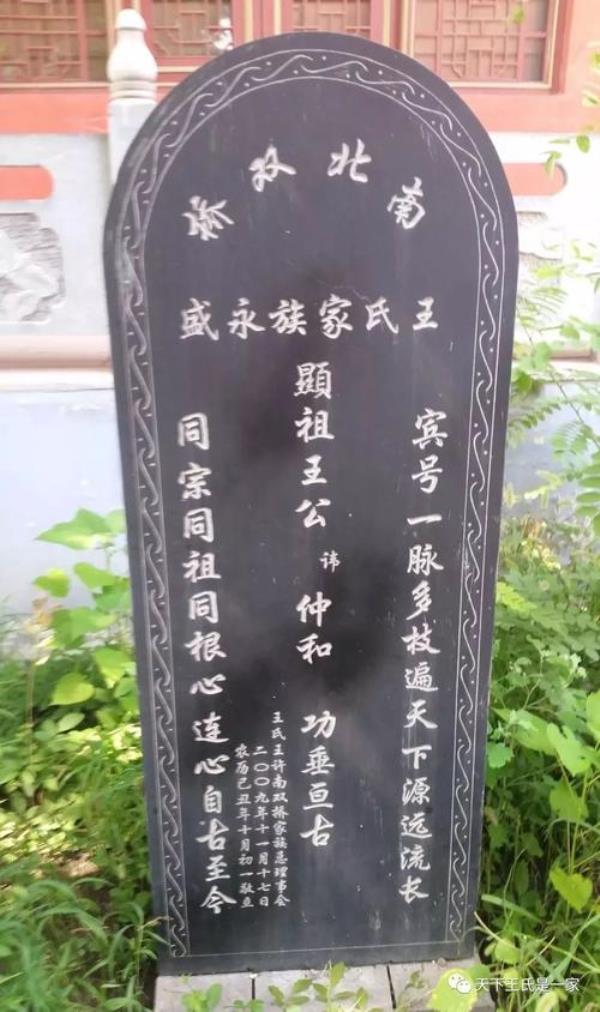 南北双桥
王氏家族永盛
宾号一脉多枝遍天下源远流长
顯祖王公 讳 仲和 功垂亘古
王氏王许南双桥家族总理事会
二〇〇九年十一月十七日
农历己丑年十月初一敬立
同宗同祖同根心连心自古至今
天下王氏是一家